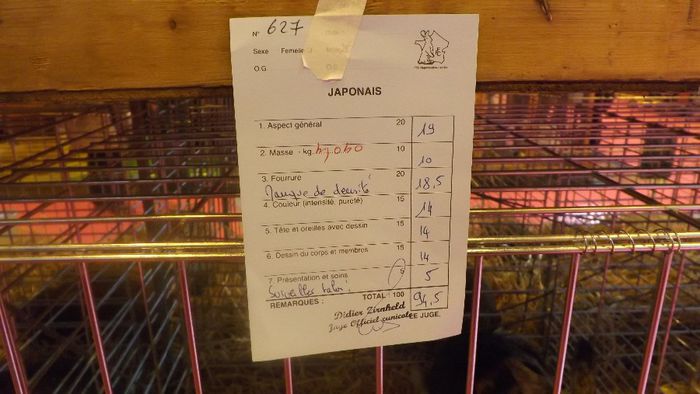 N° 627
Sexe Femelle
O.G O.G
JAPONAIS
1. Aspect général 20 19
2. Masse - kg. 4,060 10 10
3. Fourrure 20 18,5
Manque de densité
4. Couleur (intensité, pureté) 15 14
5. Tête et oreilles avec dessin 15 14
6. Dessin du corps et membres 15 14
7. Présentation et soins 5 5
Surveiller
REMARQUES : TOTAL : 100 94,5
Didier Zirnheld
Juge Officiel cunicole LE JUGE,